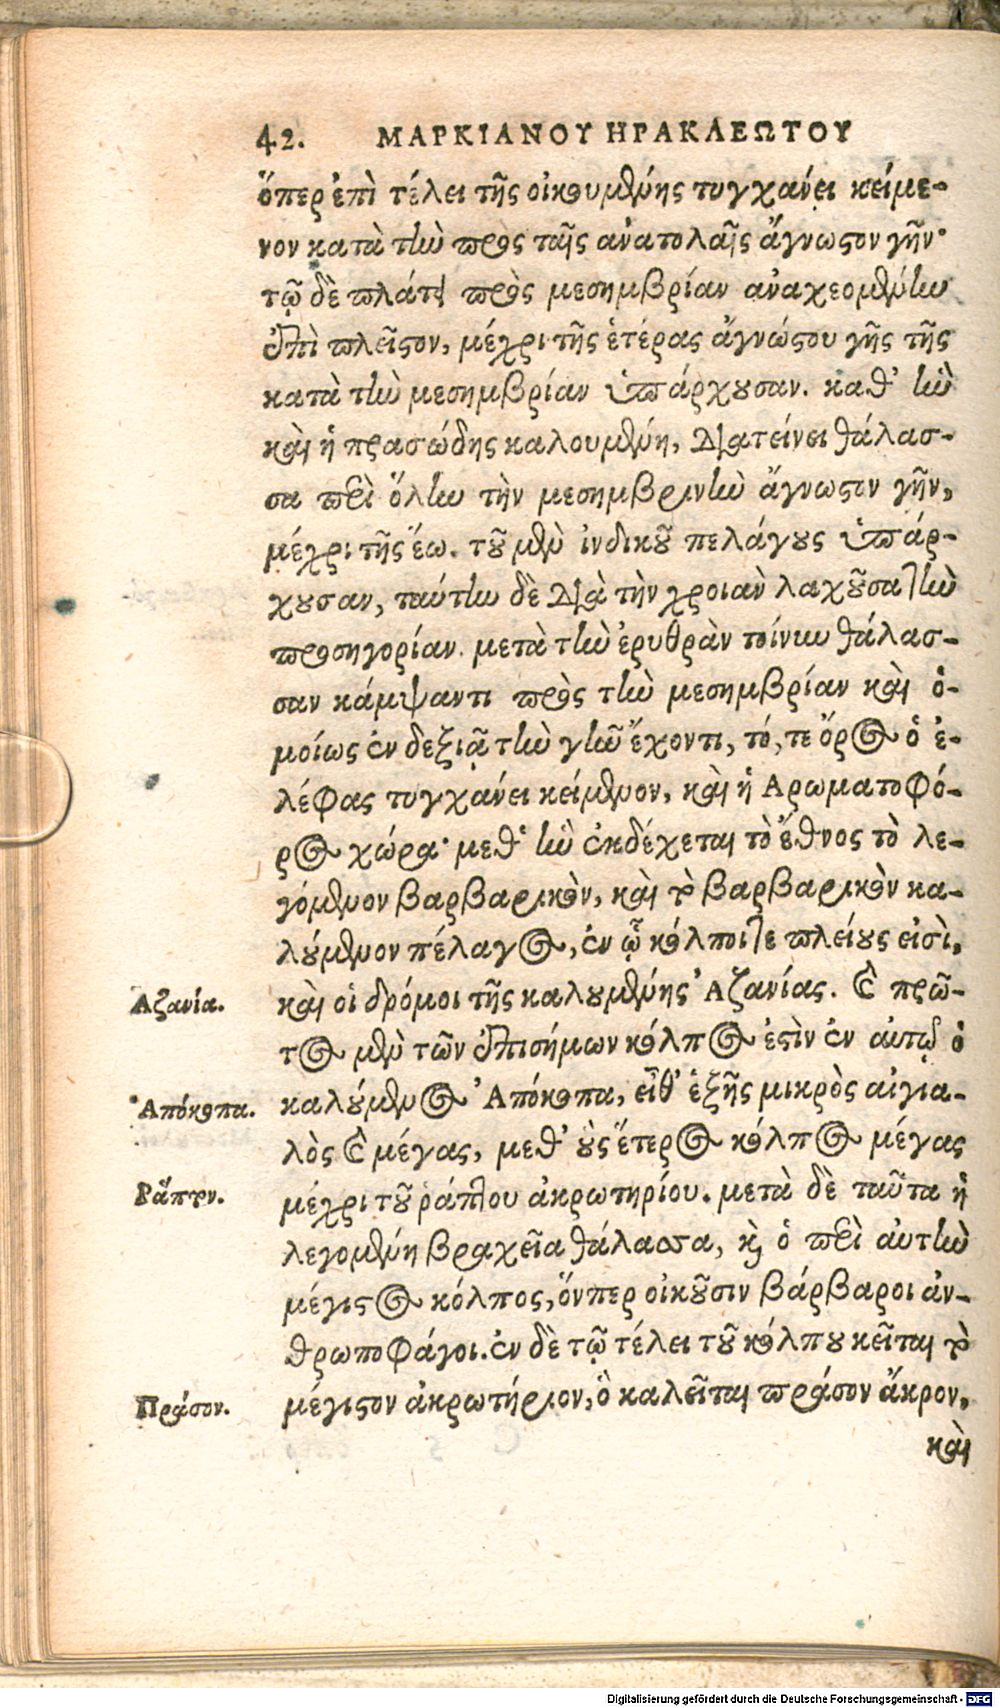 42. ΜΑΡΚΙΑΝΟΥ ΗΡΑΚΛΕΩΤΟΥ
ὅπερ ἐπὶ τέλει τῆς οἰκουμένης τυγχάνει κείμε-
νον κατὰ τὴν πρὸς ταῖς ἀνατολαῖς ἄγνωςον γῆν·
τῷ δὲ πλάτει πρὸς μεσημβρίαν ἀναχεομένην
ἐπὶ πλεῖςον, μέχρι τῆς ἑτέρας ἀγνώςου γῆς τῆς
κατὰ τὴν μεσημβρίαν ὑπάρχουσαν. καθ’ ἣν
καὶ ἡ πρασώδης καλουμένη, διατείνει θάλασ-
σα περὶ ὅλην τὴν μεσημβρινὴν ἄγνωςον γῆν,
μέχρι τῆς ἕω. τοῦ μὲν ἰνδικοῦ πελάγους ὑπάρ-
χουσαν, ταύτην δὲ διὰ τὴν χροιὰν λαχοῦσα τὴν
προσηγορίαν. μετὰ τὴν ἐρυθρὰν τοίνυν θάλασ-
σαν κάμψαντι πρὸς τὴν μεσημβρίαν καὶ ὁ-
μοίως ἐν δεξιᾷ τὴν γῆν ἔχοντι, τό, τε ὄρος ὁ ἐ-
λέφας τυγχάνει κείμενον, καὶ ἡ Αρωματοφό-
ρος χώρα· μεθ’ ἣν ἐκδέχεται τὸ ἔθνος τὸ λε-
γόμενον βαρβαρικὸν, καὶ τὸ βαρβαρικὸν κα-
λούμενον πέλαγος, ἐν ᾧ κόλποι τε πλείους εἰσὶ,
Αζανία.
καὶ οἱ δρόμοι τῆς καλουμένης Ἀζανίας. καὶ πρῶ-
τος μὲν τῶν ἐπισήμων κόλπος ἐςὶν ἐν αὐτῷ ὁ
Ἀπόκοπα.
καλούμενος Ἀπόκοπα, εἶθ’ ἑξῆς μικρὸς αἰγια-
λὸς καὶ μέγας, μεθ’ οὓς ἕτερος κόλπος μέγας
Ράπτον.
μέχρι τοῦ ῥάπτου ἀκρωτηρίου. μετὰ δὲ ταῦτα ἡ
λεγομένη βραχεῖα θάλασσα, καὶ ὁ περὶ αὐτὴν
μέγιςος κόλπος, ὅνπερ οἰκοῦσιν βάρβαροι ἀν-
θρωποφάγοι. ἐν δὲ τῷ τέλει τοῦ κόλπου κεῖται τὸ
Πράσον.
μέγιςον ἀκρωτήριον, ὃ καλεῖται πράσον ἄκρον,
καὶ
Digitalisierung gefördert durch die Deutsche Forschungsgemeinschaft - DFG